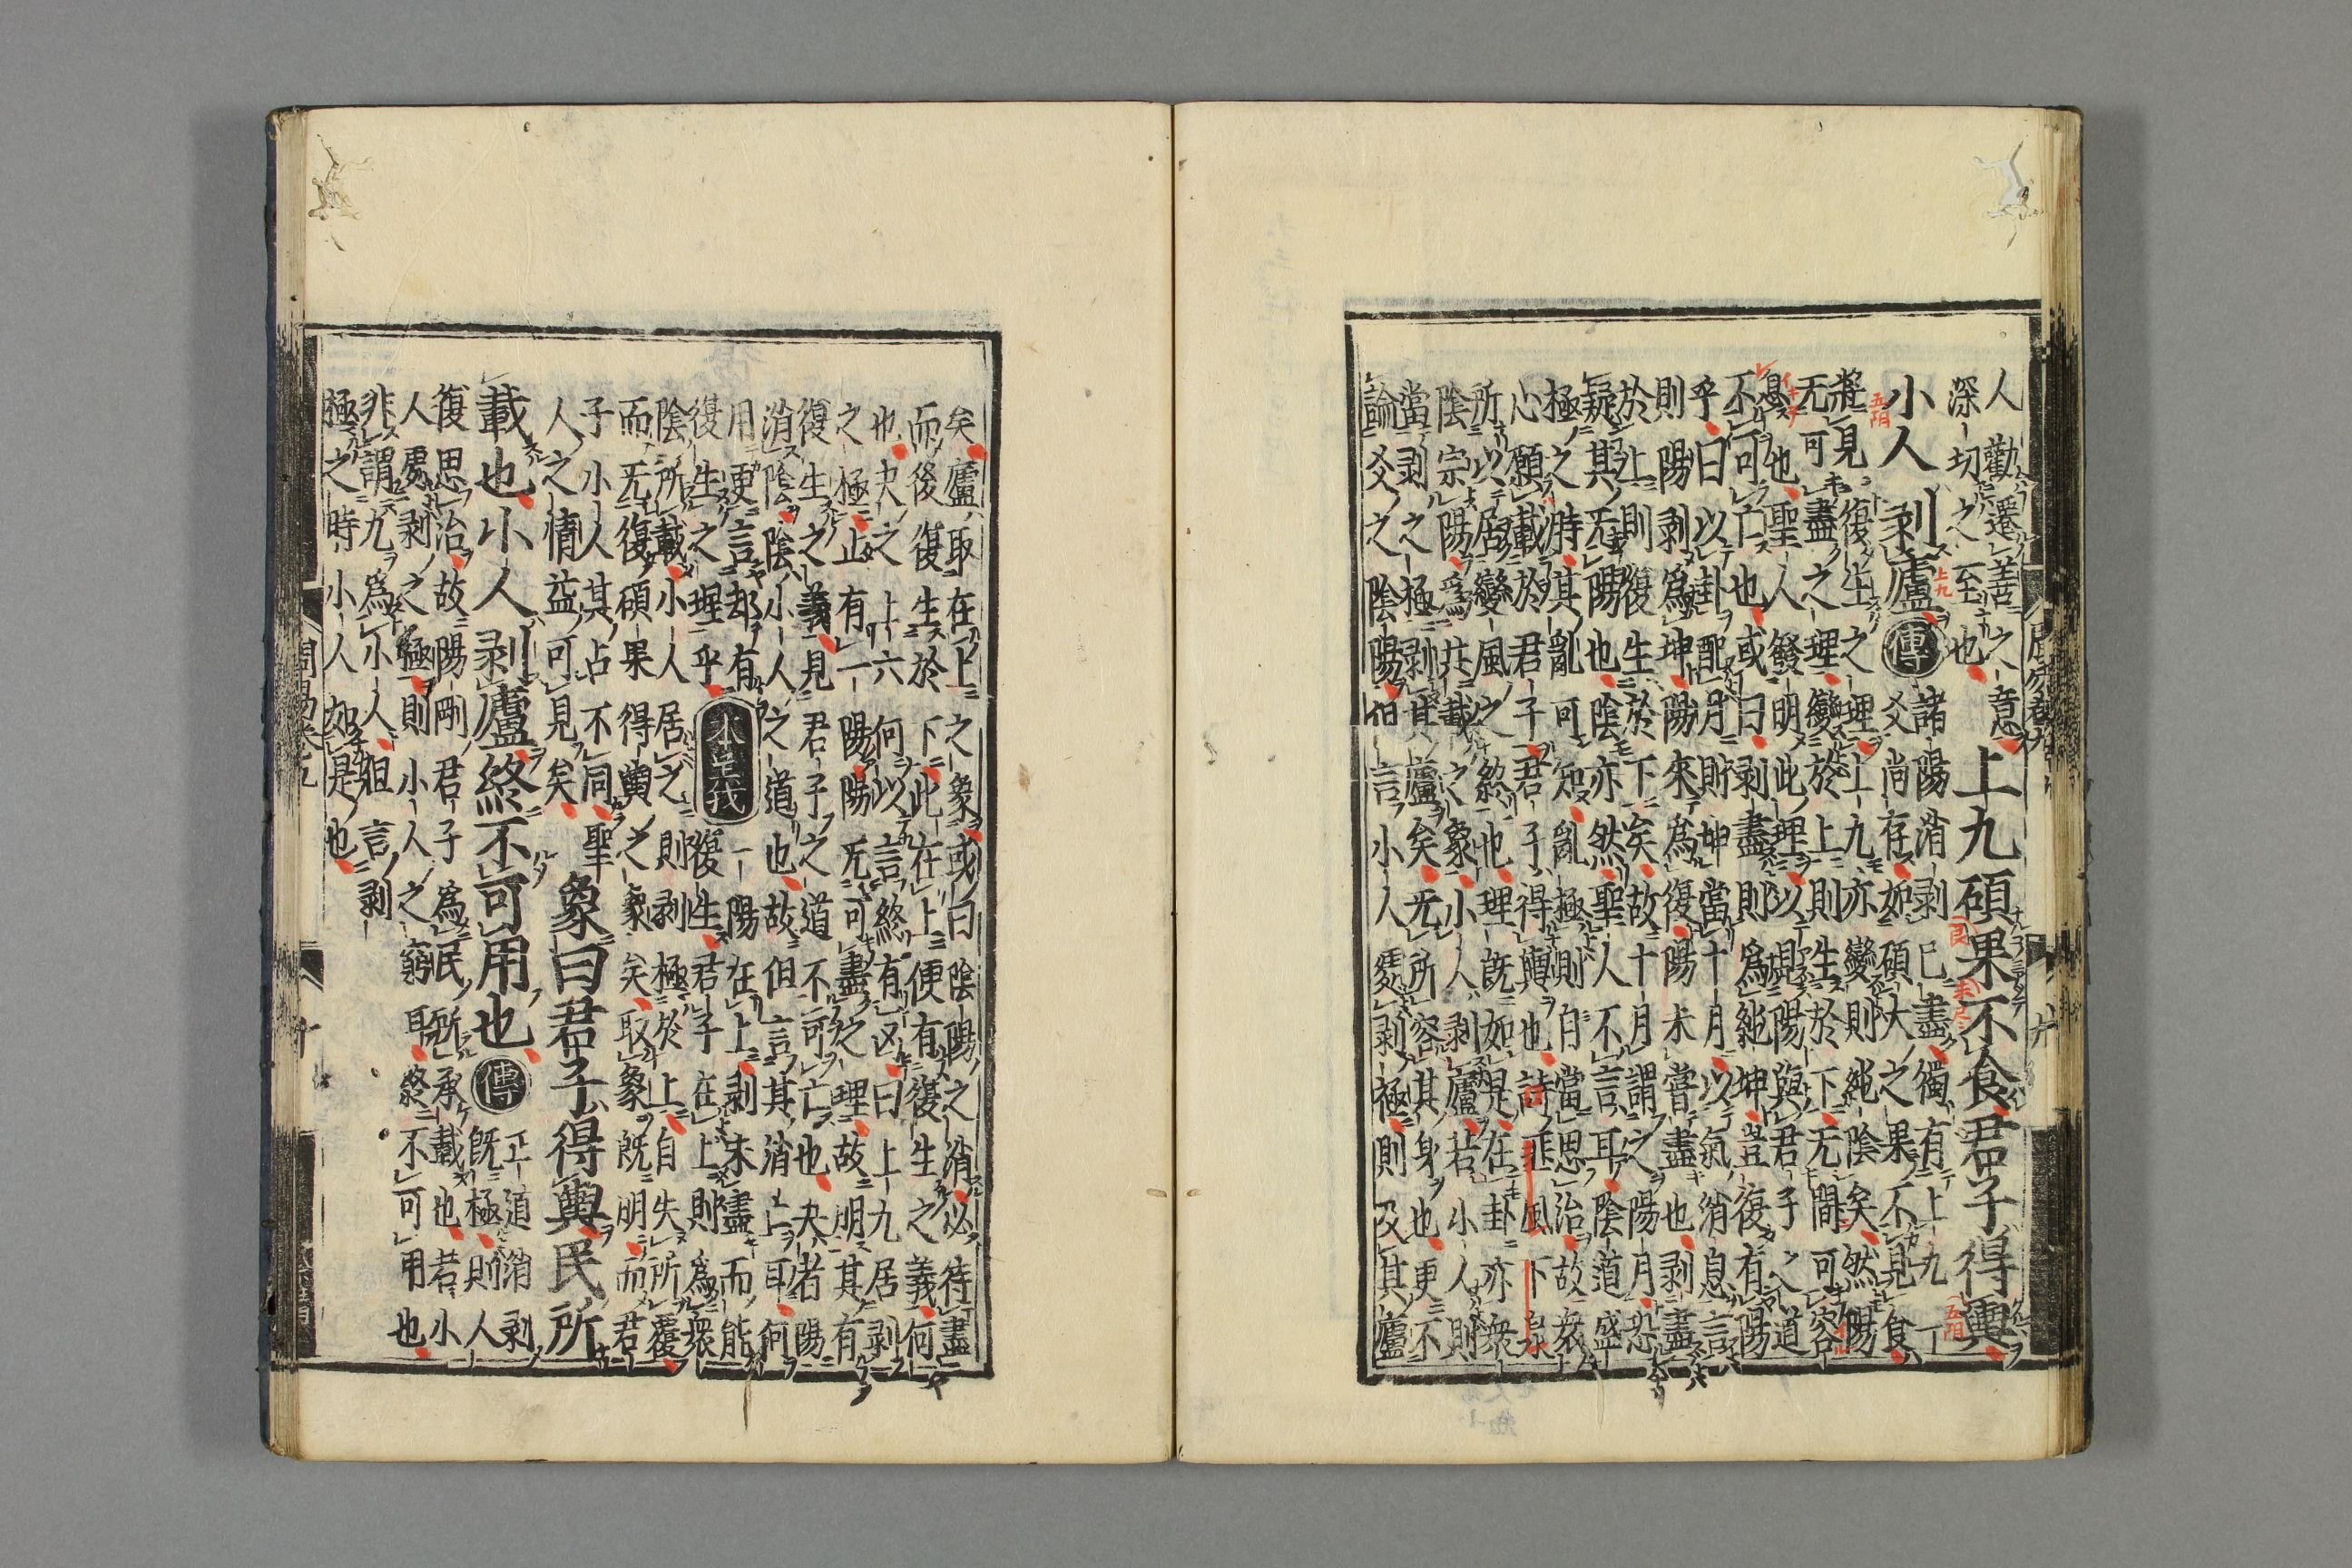 人勸遷善之意
深切之至也
上九碩果不食君子得輿
小人剝廬
傳
諸陽消剝已盡獨有上九一
爻尚存如碩大之果不見食
將見復生之理上九亦變則純陰矣然陽
无可盡之理變於上則生於下无間可容
息也聖人發明此理以見陽與君子之道
不可亡也或曰剝盡則為純坤豈復有陽
乎曰以卦配月則坤當十月以氣消息言
則陽剝為坤陽來為復陽未嘗盡也剝盡
於上則復生於下矣故十月謂之陽月恐
疑其无陽也陰亦然聖人不言耳陰道盛
極之時其亂可知亂極則自當思治故衆
心願載於君子君子得輿也詩匪風下泉
所以居變風之終也理既如是在卦亦衆
陰宗陽為共載之象小人剝廬若小人則
當剝之極剝其廬矣无所容其身也更不
論爻之陰陽但言小人處剝極則及其廬
矣廬取在上之象或曰陰陽之消必待盡
而後復生於下此在上便有復生之義何
也夬之上六何以言終有凶曰上九居剝
之極止有一陽陽无可盡之理故明其有
復生之義見君子之道不可亡也夬者陽
消陰陰小人之道也故但言其消亡耳何
用更言却有
復生之理乎
本義
一陽在上剝未盡而能
復生君子在上則為衆
陰所載小人居之則剝極於上自失所覆
而无復碩果得輿之象矣取象既明而君
子小人其占不同聖
人之情益可見矣
象曰君子得輿民所
載也小人剝廬終不可用也
傳
正道消剝
既極則人
復思治故陽剛君子為民所承載也若小
人處剝之極則小人之窮耳終不可用也
非謂九為小人但言剝
極之時小人如是也